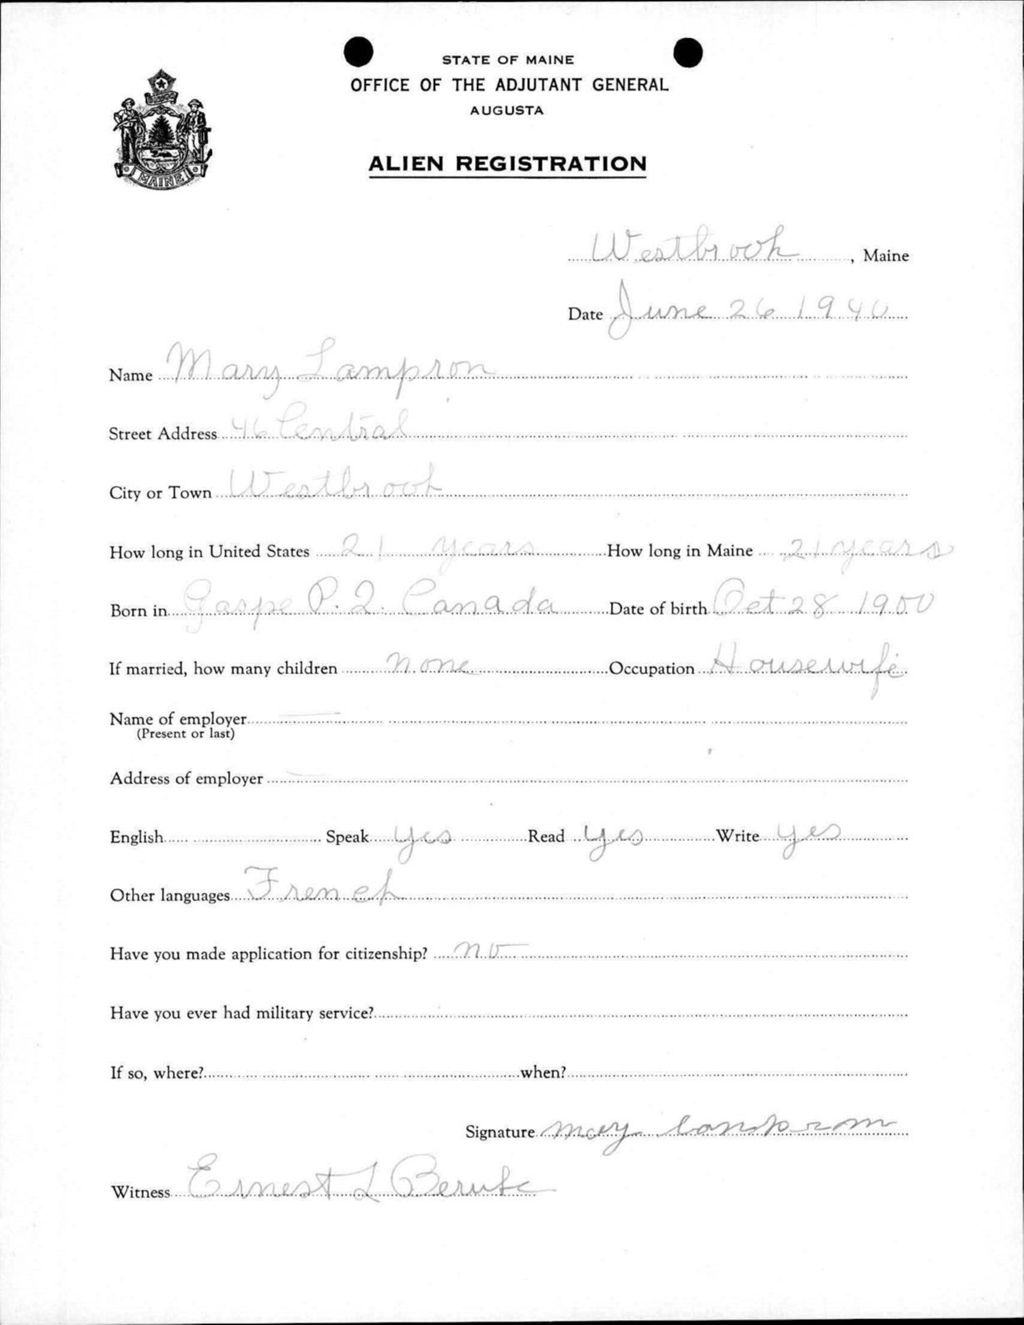 STATE OF MAINE
OFFICE OF THE ADJUTANT GENERAL
AUGUSTA
MAINE
ALIEN REGISTRATION
Westbrook, Maine
Date June 26 1940
Name Mary Lampron
Street Address 46 Central
City or Town Westbrook
How long in United States 21 years How long in Maine 21 years
Born in Gaspe P.Q. Canada Date of birth Oct 28 1900
If married, how many children none Occupation Housewife
Name of employer
(Present or last)
Address of employer
English Speak Yes Read Yes Write Yes
Other languages French
Have you made application for citizenship? no
Have you ever had military service?
If so, where? when?
Signature Mary Lampron
Witness Ernest L